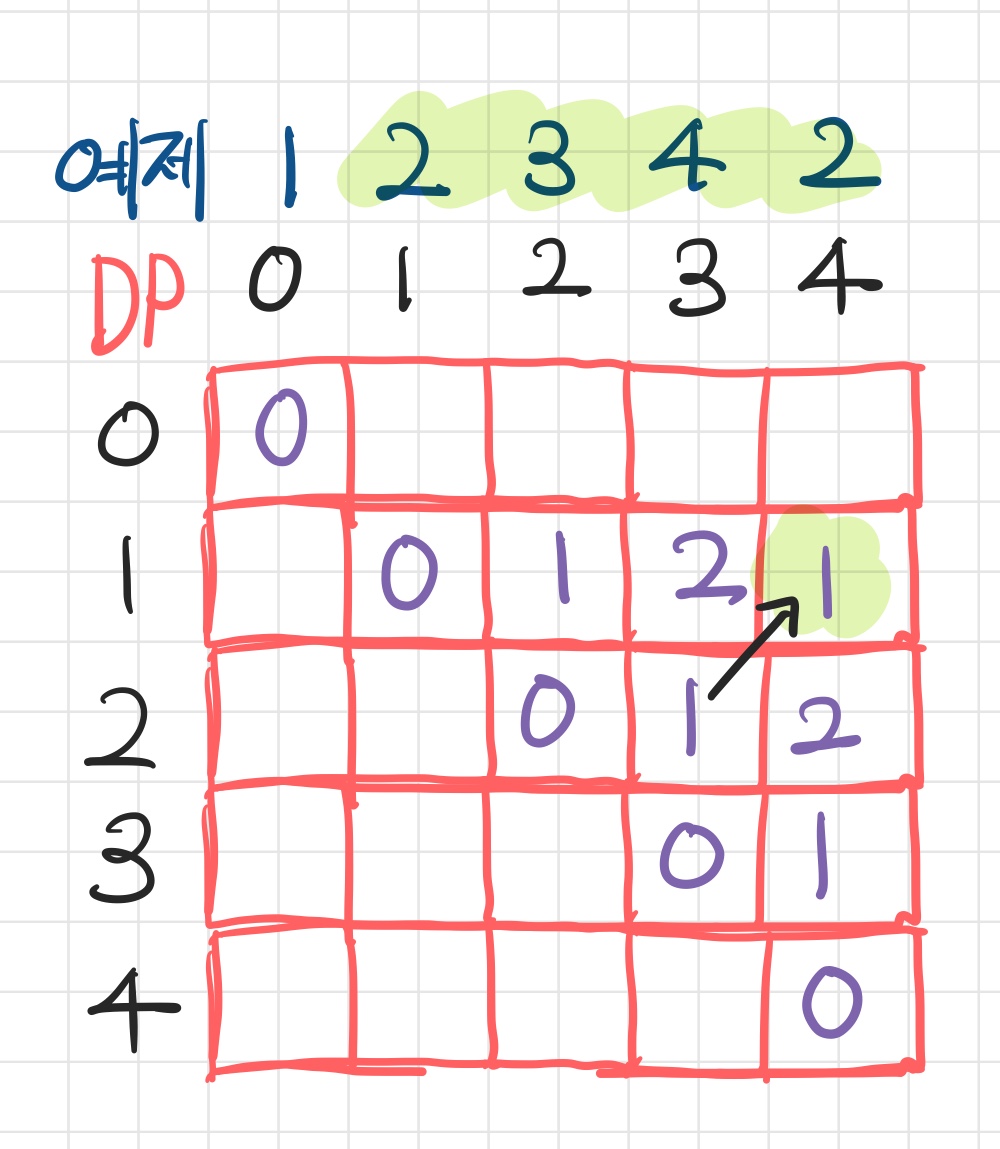 예제 1 2 3 4 2
DP 0 1 2 3 4
0 0
1 0 1 2 1
2 0 1 2
3 0 1
4 0